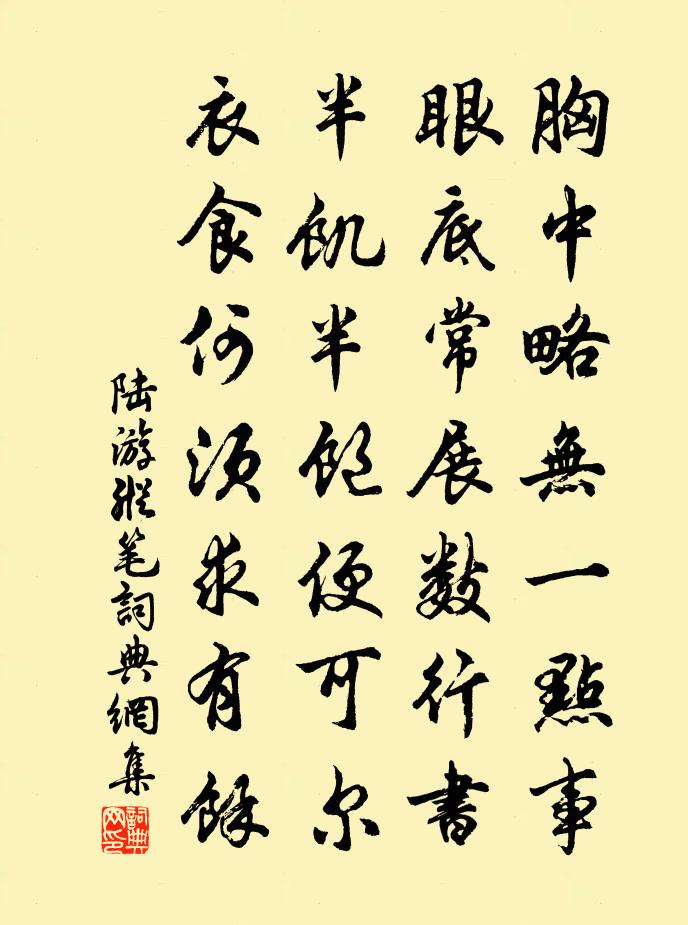 胸中略無一點事
眼底常展數行書
半飢半飽便可尔
衣食何須求有餘
陆游縱笔詞典網集
詞典网印